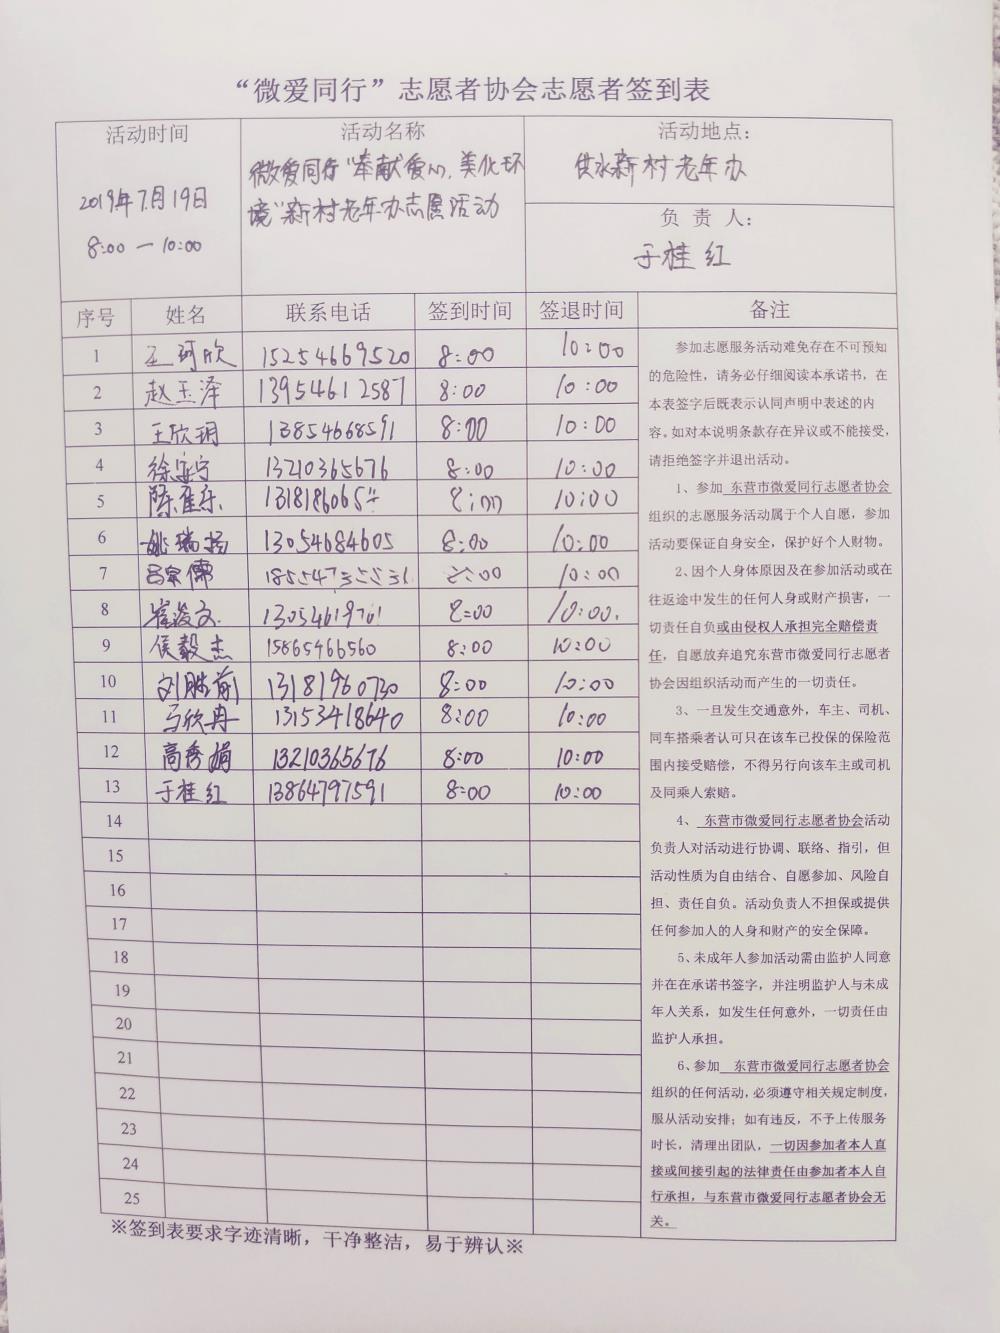 “微爱同行”志愿者协会志愿者签到表
活动时间
2019年7月19日
8:00 — 10:00
活动名称
微爱同行“奉献爱心,美化环
境”新村老年办志愿活动
活动地点:
供水新村老年办
负 责 人:
于桂红
序号 姓名 联系电话 签到时间 签退时间 备注
1 王珂欣 15254669520 8:00 10:00
2 赵玉泽 13954612587 8:00 10:00
3 王欣玥 13854668591 8:00 10:00
4 徐安宁 13210365676 8:00 10:00
5 陈 乐 8:00 10:00
6 姚瑞扬 13054684605 8:00 10:00
7 吕宗儒 8:00 10:00
8 崔浚文 13054619761 8:00 10:00.
9 侯毅杰 15865466560 8:00 10:00
10 刘胜前 13181960730 8:00 10:00
11 马欣冉 13153418640 8:00 10:00
12 高秀娟 13210365676 8:00 10:00
13 于桂红 13864797591 8:00 10:00
14
15
16
17
18
19
20
21
22
23
24
25
参加志愿服务活动难免存在不可预知
的危险性，请务必仔细阅读本承诺书，在
本表签字后既表示认同声明中表述的内
容。如对本说明条款存在异议或不能接受，
请拒绝签字并退出活动。
1、参加 东营市微爱同行志愿者协会
组织的志愿服务活动属于个人自愿，参加
活动要保证自身安全，保护好个人财物。
2、因个人身体原因及在参加活动或在
往返途中发生的任何人身或财产损害，一
切责任自负或由侵权人承担完全赔偿责
任，自愿放弃追究东营市微爱同行志愿者
协会因组织活动而产生的一切责任。
3、一旦发生交通意外，车主、司机、
同车搭乘者认可只在该车已投保的保险范
围内接受赔偿，不得另行向该车主或司机
及同乘人索赔。
4、 东营市微爱同行志愿者协会活动
负责人对活动进行协调、联络、指引，但
活动性质为自由结合、自愿参加、风险自
担、责任自负。活动负责人不担保或提供
任何参加人的人身和财产的安全保障。
5、未成年人参加活动需由监护人同意
并在在承诺书签字，并注明监护人与未成
年人关系，如发生任何意外，一切责任由
监护人承担。
6、参加 东营市微爱同行志愿者协会
组织的任何活动，必须遵守相关规定制度，
服从活动安排；如有违反，不予上传服务
时长，清理出团队，一切因参加者本人直
接或间接引起的法律责任由参加者本人自
行承担，与东营市微爱同行志愿者协会无
关。
※签到表要求字迹清晰，干净整洁，易于辨认※